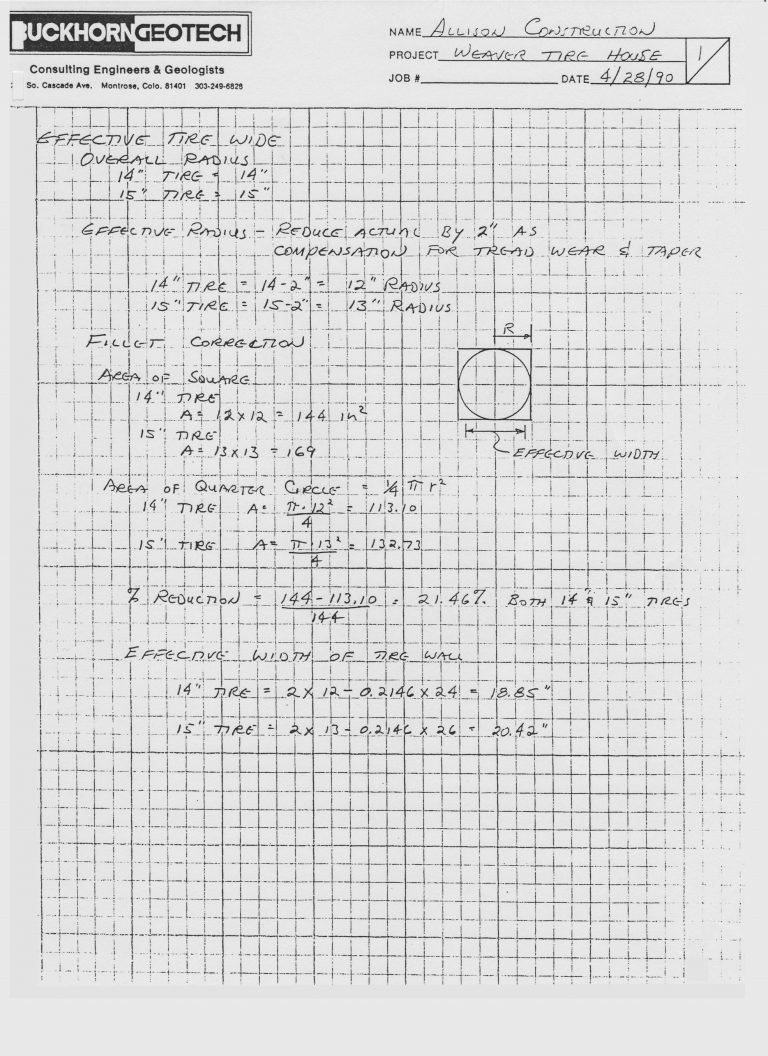 BUCKHORN GEOTECH
Consulting Engineers & Geologists
So. Cascade Ave. Montrose, Colo. 81401 303-249-6828
NAME ALLISON CONSTRUCTION
PROJECT WEAVER TIRE HOUSE
1/
JOB #
DATE 4/28/90
EFFECTIVE TIRE WIDE
OVERALL RADIUS
14" TIRE = 14"
15" TIRE = 15"
EFFECTIVE RADIUS - REDUCE ACTUAL BY 2" AS
COMPENSATION FOR TREAD WEAR & TAPER
14" TIRE = 14-2" = 12" RADIUS
15" TIRE = 15-2" = 13" RADIUS
R
FILLET CORRECTION
AREA OF SQUARE
14" TIRE
A = 12 x 12 = 144 in²
15" TIRE
A = 13 x 13 = 169
EFFECTIVE WIDTH
AREA OF QUARTER CIRCLE = 1/4 π r²
14" TIRE A = π · 12² / 4 = 113.10
15" TIRE A = π · 13² / 4 = 132.73
% REDUCTION = 144 - 113.10 / 144 = 21.46% BOTH 14" & 15" TIRES
EFFECTIVE WIDTH OF TIRE WALL
14" TIRE = 2 x 12 - 0.2146 x 24 = 18.85"
15" TIRE = 2 x 13 - 0.2146 x 26 = 20.42"